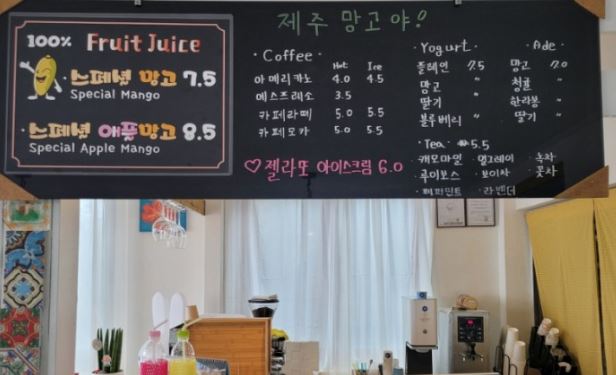 제주 망고야!
100% Fruit Juice
스페셜 망고 7.5
Special Mango
스페셜 애플망고 8.5
Special Apple Mango
· Coffee ·
Hot Ice
아메리카노 4.0 4.5
에스프레소 3.5
카페라떼 5.0 5.5
카페모카 5.0 5.5
♡ 젤라또 아이스크림 6.0
· Yogurt ·
플레인 7.5
망고 "
딸기 "
블루베리 "
· Ade ·
망고 7.0
청귤 "
한라봉 "
딸기 "
· Tea · 5.5
· 캐모마일 · 얼그레이 · 녹차
· 루이보스 · 보이차 · 꽃차
· 페퍼민트 · 라벤더